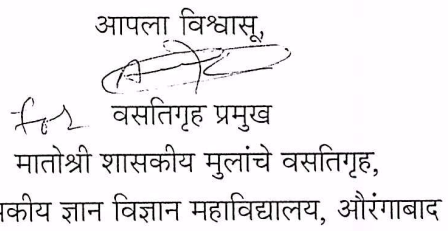 आपला विश्वासू,
for वसतिगृह प्रमुख
मातोश्री शासकीय मुलांचे वसतिगृह,
कीय ज्ञान विज्ञान महाविद्यालय, औरंगाबाद